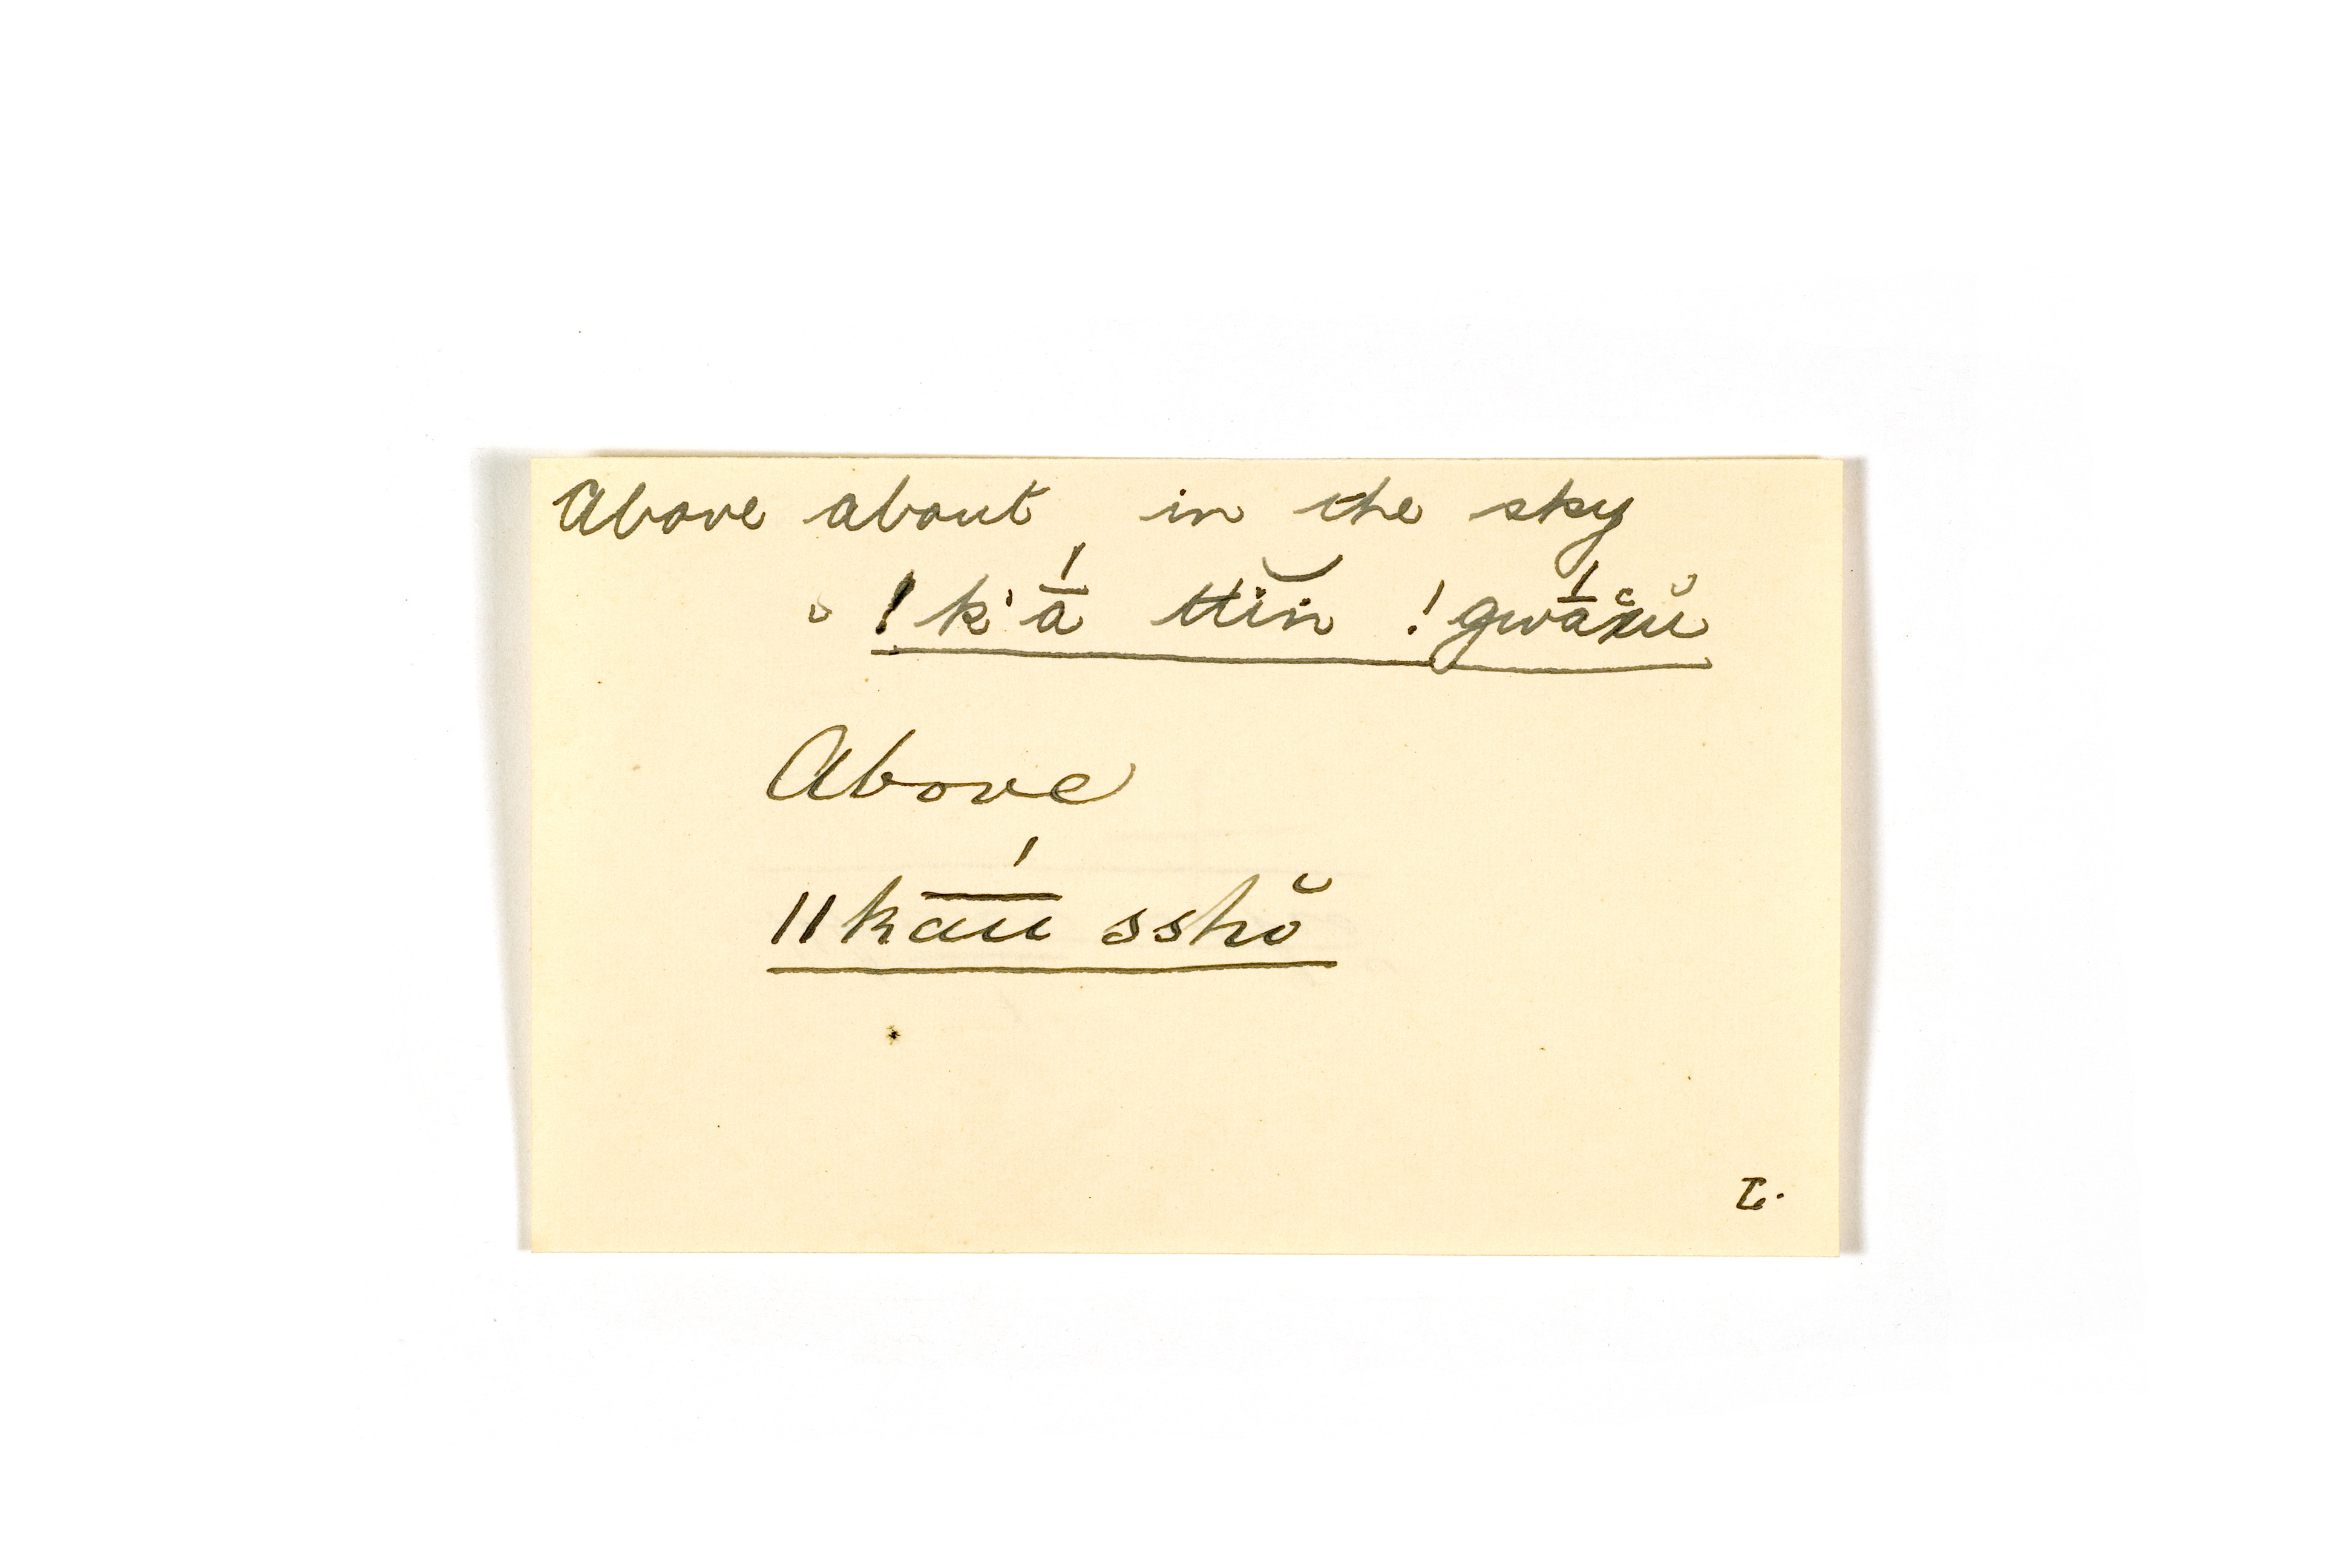 Above about in the sky
!k'ā́ ttĭn !gwā́xŭ
Above
ǁka͞úu sshŏ
L.